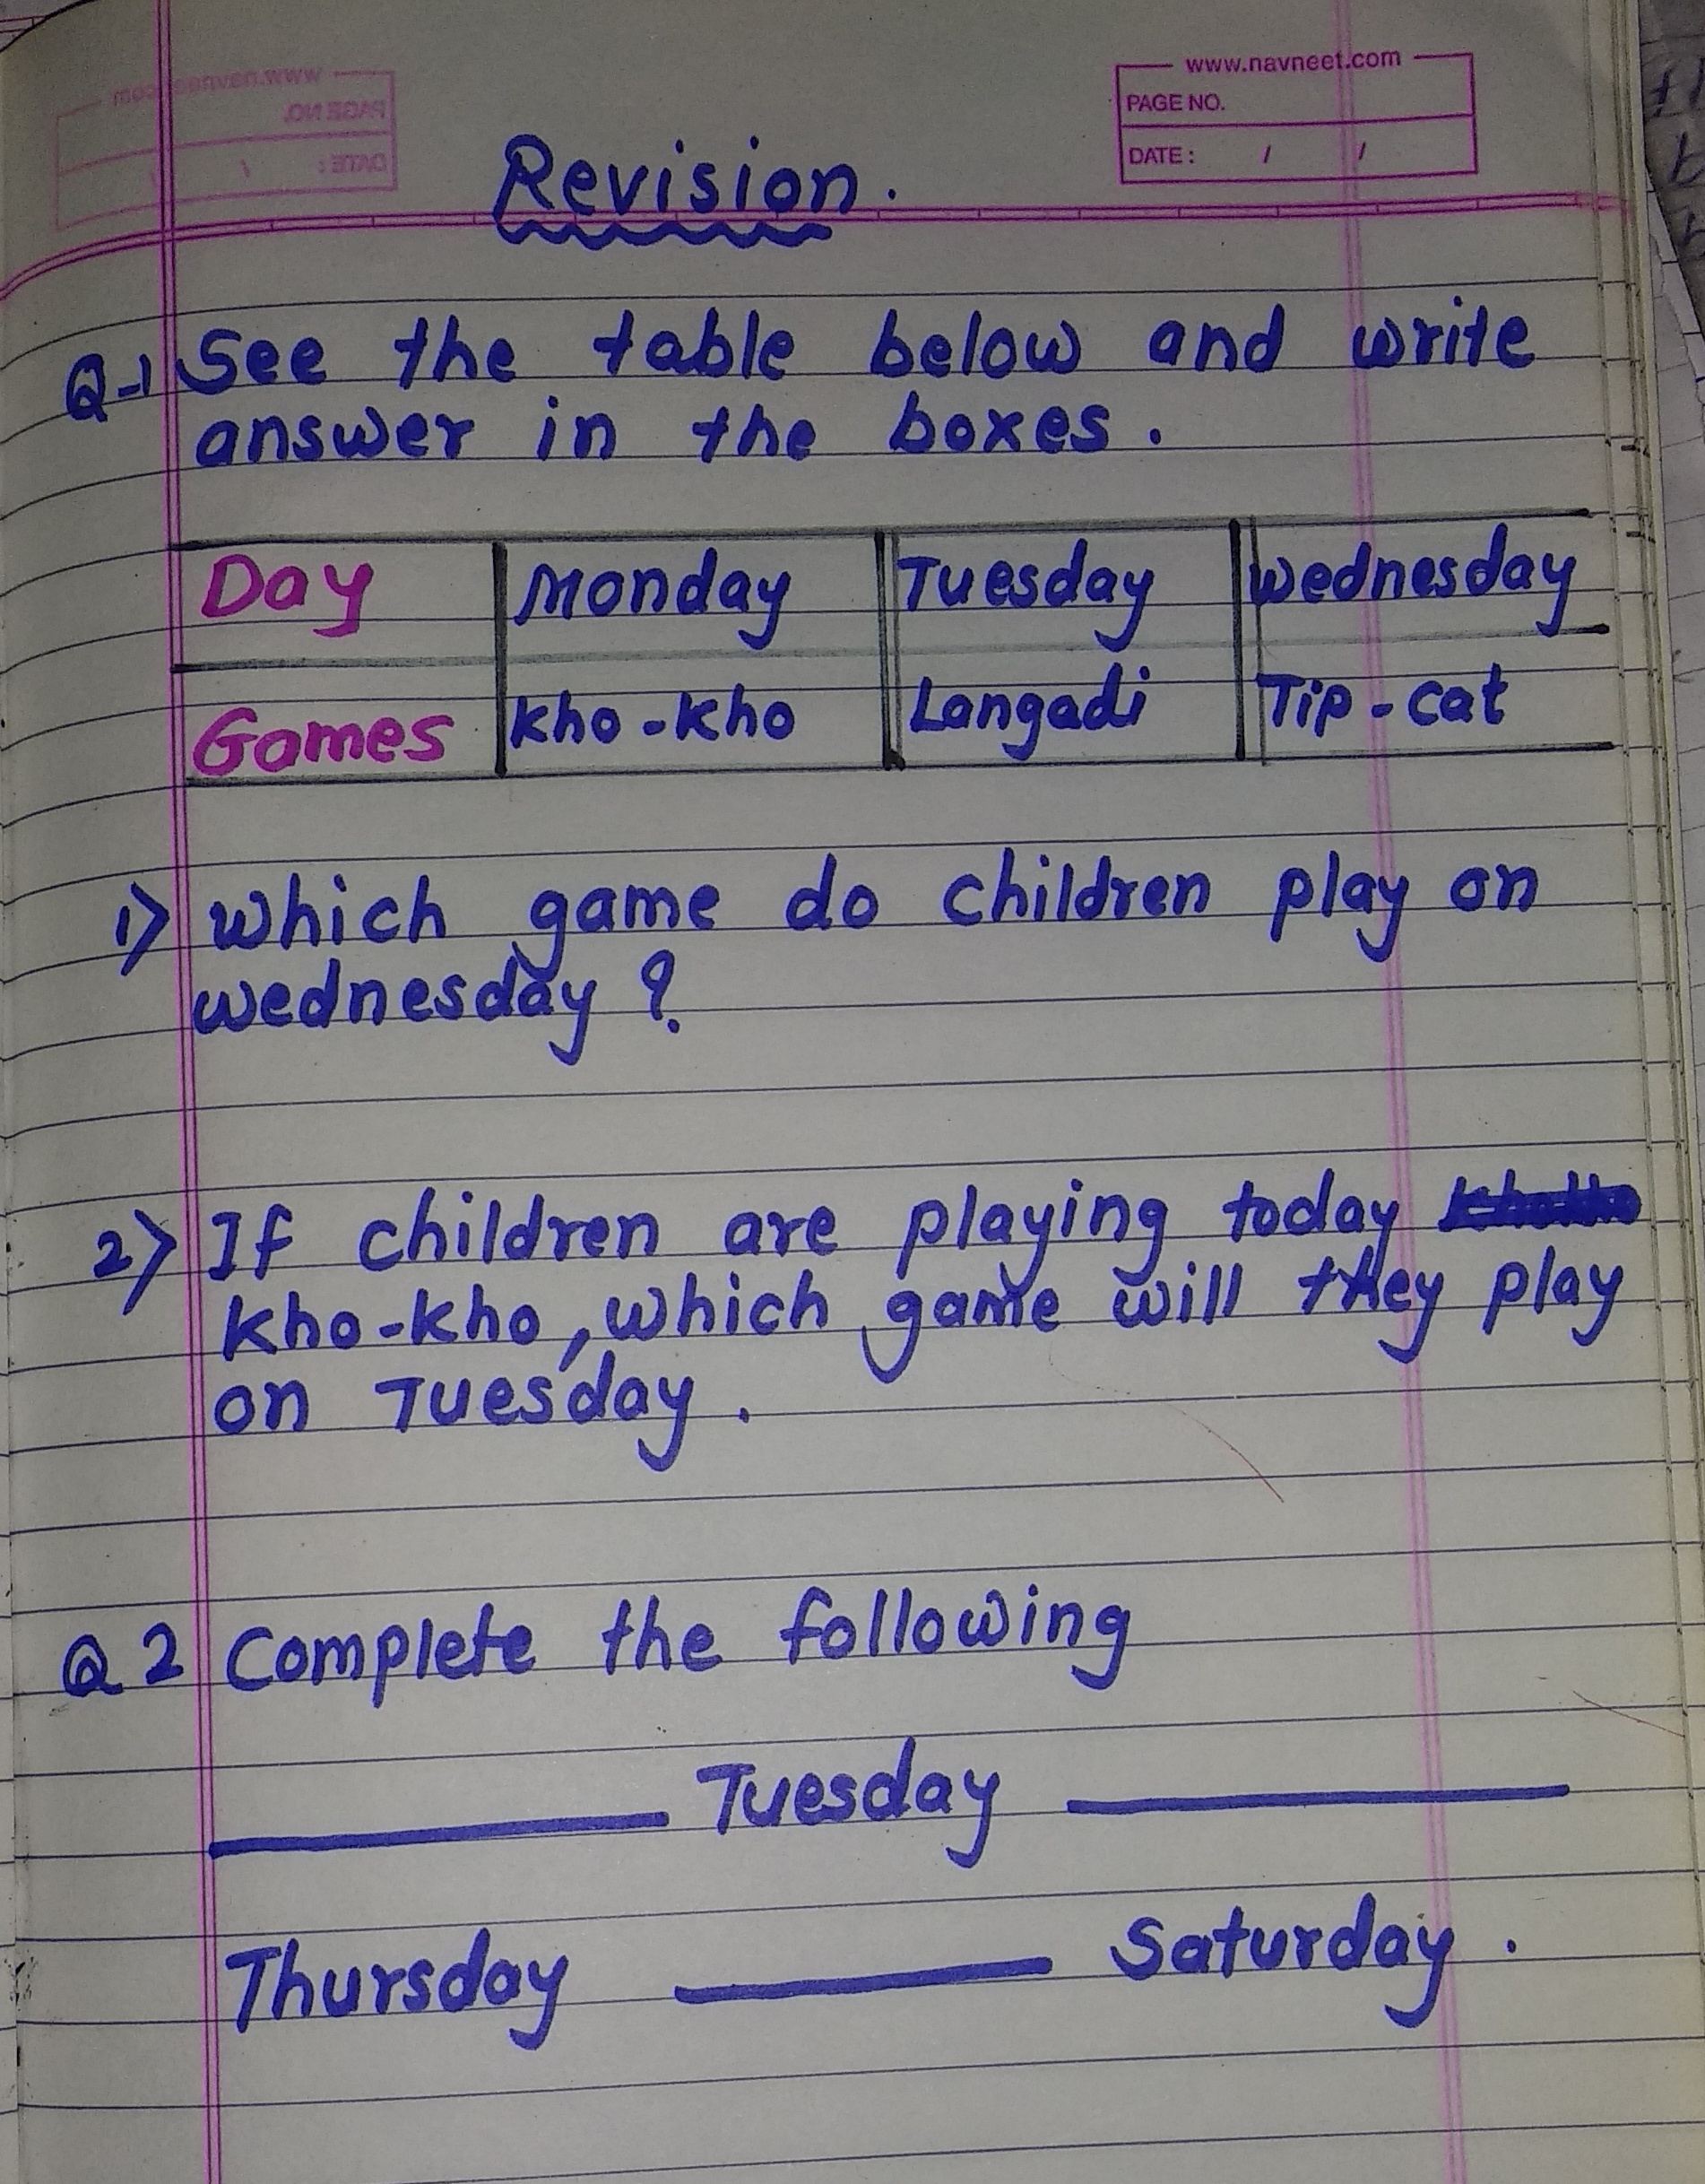 www.navneet.com
PAGE NO.
DATE : / /
Revision.
Q-1 See the table below and write
answer in the boxes.
Day Monday Tuesday wednesday
Games kho-kho Langadi Tip-cat
1) which game do children play on
wednesday ?
2) If children are playing today
kho-kho, which game will they play
on Tuesday.
Q 2 Complete the following
Tuesday
Thursday Saturday.